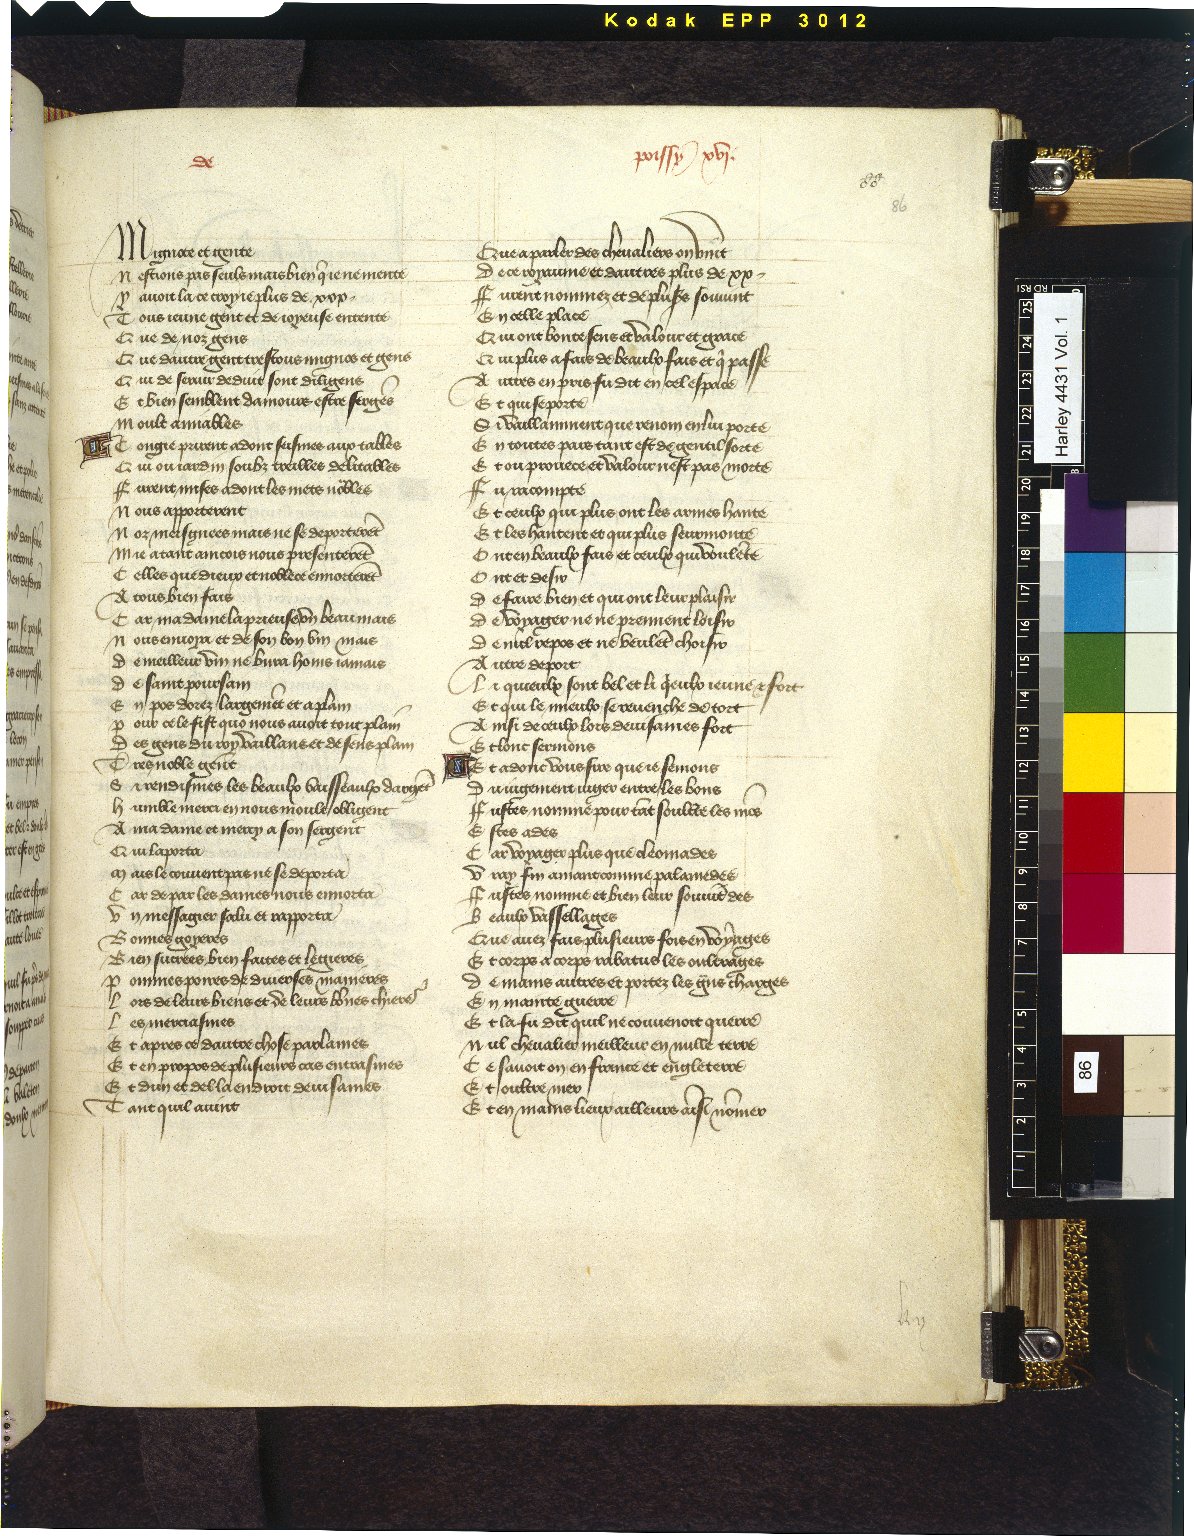 Kodak EPP 3012
de
poissy xvj.
88
86
Mignote et gente
N estions pas seuls mais bien q̃ ie ne mente
Y auoit la ce croy ie plus de .xxv.
T ous ieune gent et de ioyeuse entente
Q ue de noz gens
Q ue dautre gent trestous mignos et gens
Q ui de seruir deduit sont diligens
E t bien semblent damours estre sergẽs
M oult amiables
C ongie prirent adont seismes aux tables
Q ui ou iardin soubz treilles delitables
F urent mises adont les mets nõbles
N ous apporterent
N oz meisgnees mais ne se deporterẽt
M ie atant aincois nous presenterẽt
C elles que dieux et noblece enorterẽt
A tous bien fais
C ar ma dame la prieuse vn beau mais
N ous enuoya et de son bon vin mais
D e meilleur vin ne bura homs iamais
D e saint poursain
E n pos dorez largemẽt et a plain
P our ce le fist quo nous auoit tout plain
D es gens du roy vaillans et de sens plain
T res noble gent
S i rendismes les beaulx vaisseaulx dargẽt
H umble merci en nous moult obligent
A ma dame et mercy a son sergent
Q ui laporta
M ais le couuent pas ne se deporta
C ar de par les dames nous enorta
V n messagier salu et rapporta
B onnes goyeres
B ien sucrees bien faites et legieres
P ommes poires de diuerses manieres
L ors de leurs biens et de leurs bõnes chieres
L es merciasmes
E t apres ce dautre chose parlames
E t en propos de plusieurs cas entrasmes
E t dun et del la endroit deuisames
T ant quil auint
Q ue a parler des cheualiers on vint
D e ce royaume et dautres plus de xx.
F urent nommez et de plus se souuint
E n celle place
Q ui ont bonte sens et valour et grace
Q ui plus a fais de beaulx fais et q̃ passe
A utres en pris fu dit en cel espace
E t qui se porte
S i vaillamment que renom en lui porte
E n toutes pars tant est de gentil sorte
E t ou prouece et valour nest pas morte
F u racompte
E t ceulx qui plus ont les armes hante
E t les hantent et qui plus seurmonte
O nt en beaulx fais et ceulx qui voulẽte
O nt et desir
D e faire bien et qui ont leur plaisir
D e voyager ne ne prennent loisir
D e nul repos et ne veulẽt choisir
A utre deport
L i quieulx sont bel et li q̃eulx ieune et fort
E t qui le mieulx se reuenche de tort
A insi de ceulx lors deuisames fort
E t lonc sermons
E t adonc vous sire que ie semons
D u iugement iuger entre les bons
F ustes nomme pour tãt soubte les mõs
E stes ades
C ar voyager plus que cleomades
V ray fin amant comme palamedes
F ustes nomme et bien leur souuĩt des
B eaulx vassellages
Q ue auez fais plusieurs fois en voyages
E t corps a corps rabatus les oultrages
D e mains autres et portez les grãs charges
E n mainte guerre
E t la fu dit quil ne couuenoit querre
N ul cheualier meilleur en nulle terre
C e sauoit on en france et engleterre
E t oultre mer
E t en mains lieux ailleurs aĩsi nõmer
Harley 4431 Vol. 1
86